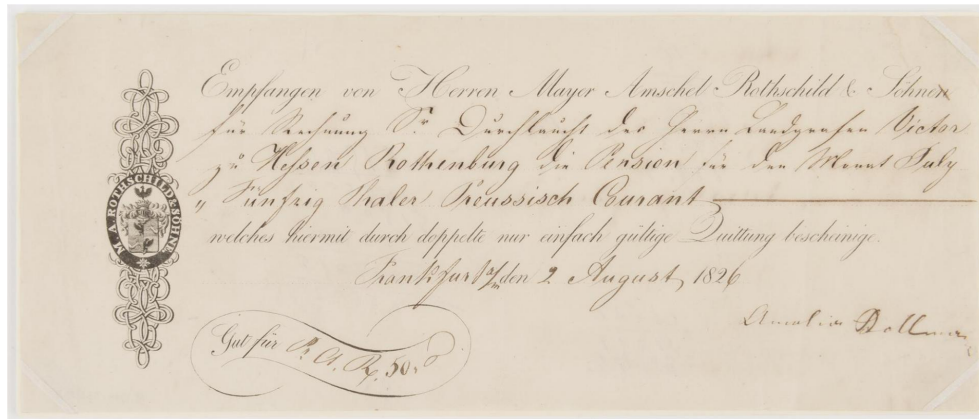 Empfangen von Herren Mayer Amschel Rothschild & Söhnen
für Rechnung Sr. Durchlaucht des Herrn Landgrafen Victor
zu Hessen Rothenburg die Pension für den Monat July
" Fünfzig Thaler Preussisch Courant
welches hiermit durch doppelte nur einfach gültige Quittung bescheinige.
Frankfurt a/m den 2 August 1826
Amalia
Gut für Pr. Ct. Rp. 50,
M. A. ROTHSCHILD & SÖHNE